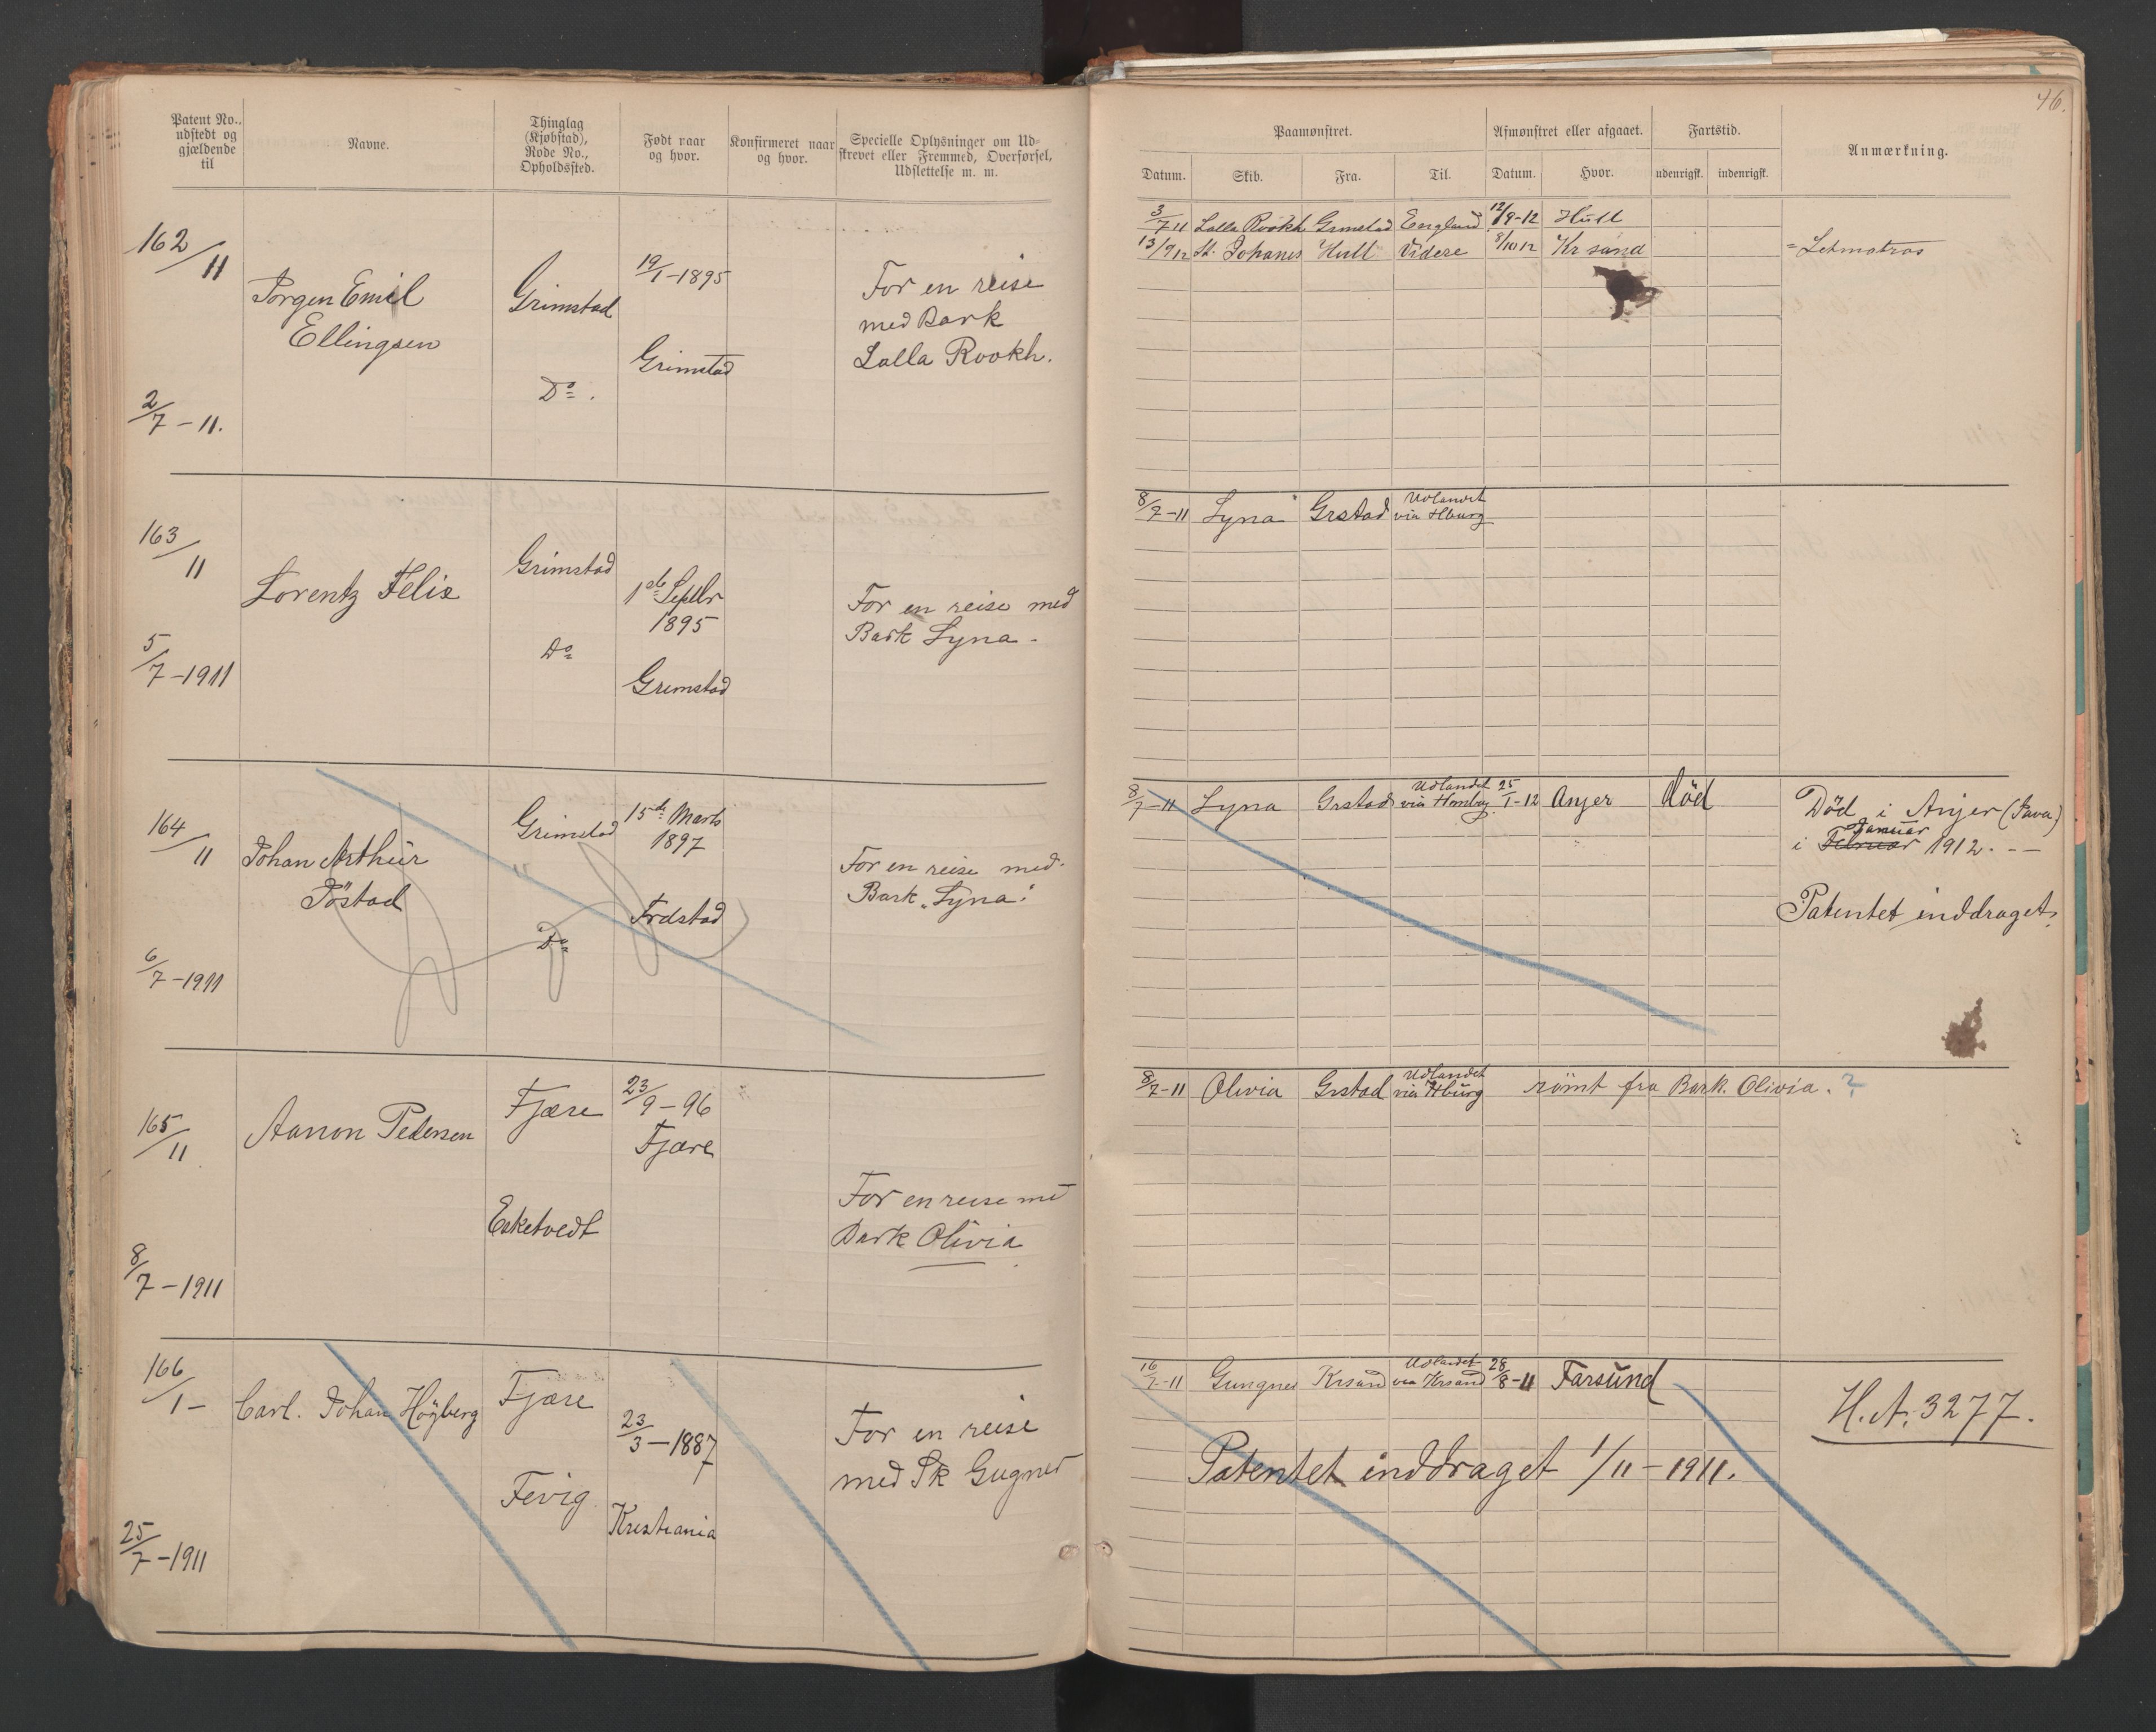 46.
Patent No., udstedt og gjældende til
Navne.
Thinglag (Kjøbstad), Rode No., Opholdssted.
Født naar og hvor.
Konfirmeret naar og hvor.
Specielle Oplysninger om Udskrevet eller Fremmed, Overførsel, Udslettelse m. m.
Paamønstret.
Afmønstret eller afgaaet.
Fartstid.
Anmærkning.
Datum.
Skib.
Fra.
Til.
Datum.
Hvor.
udenrigsk.
indenrigsk.
162/11
Jørgen Emil
Ellingsen
Grimstad
Do.
19/1-1895
Grimstad
For en reise
med Bark
Lalla Rookh.
2/7-11.
3/7 11 Lalla Rookh Grimstad England 12/9-12 Hull
13/9 12 St. Johanes Hull Videre 8/10 12 Kr sand = Letmatros
163/11
Lorentz Felix
Grimstad
Do
1ste Septbr
1895
Grimstad
For en reise med
Bark Lyna.
5/7-1911
8/7-11 Lyna Grstad Udlandet
via Hburg
164/11
Johan Arthur
Jöstad
Grimstad
Do
15de Marts
1897
Frdstad
For en reise med
Bark „Lyna"
6/7-1911
8/7-11 Lyna Grstad Udlandet
via Hambrg 25/1-12 Anjer död
Död i Anjer (Java)
Januar
i Februar 1912. --
Patentet inddraget.
165/11
Aanon Pedersen
Fjære
Esketvedt
23/9-96
Fjære
For en reise med
Bark Olivia
8/7-1911
8/7-11 Olivia Grstad Udlandet
via Hburg römt fra Bark. Olivia. ?
166/1-
Carl. Johan Höyberg
Fjære
Fevig
23/3-1887
Kristiania
For en reise
med Sk Gugner
25/7-1911
16/7-11 Gungner Krsand Udlandet
via Krsand 28/8-11 Farsund
H.A. 3277.
Patentet inddraget 1/11-1911.